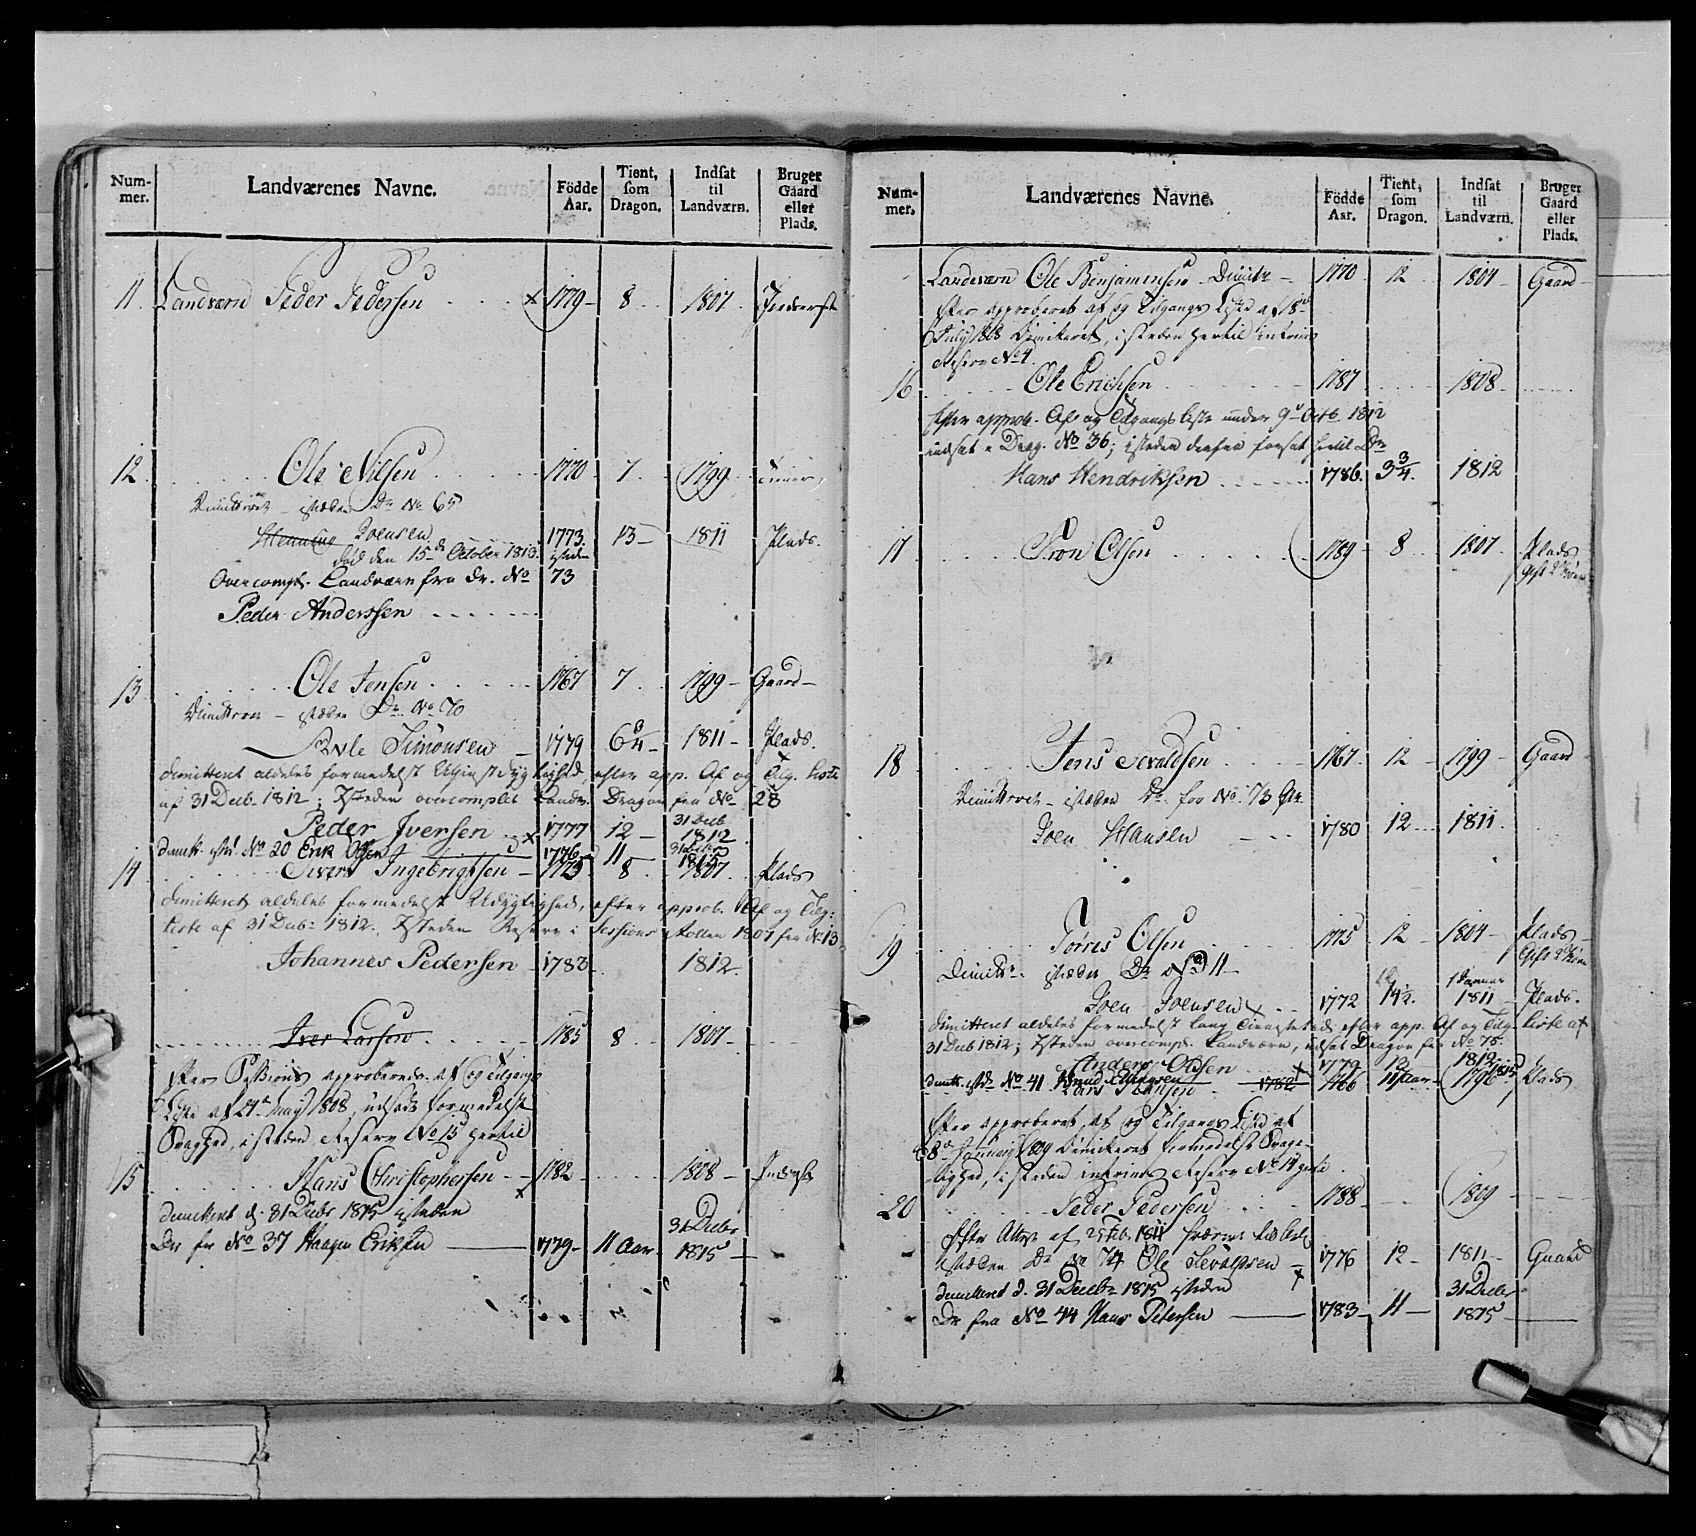 Num-
mer.
Landværenes Navne.
Födde
Aar.
Tient,
som
Dragon.
Indsat
til
Landværn.
Bruger
Gaard
eller
Plads.
11. Landværn Peder Pedersen 1779 8 1807 Inderst
12. Ole Nilsen 1770 7 1799
Dimitteret istæden Dr No 65
Henning Joensen 1773. 13 1811 Plads.
død den 15de October 1813. isteden
Overcompl. Landværn fra Dr. No 73
Peder Anderssen
13 Ole Jensen 1767 7 1799 Gaard
Dimitteret istæden Dr No 70
Simonsen 1779 6 3/4 1811 Plads.
dimitteret aldeles formedelst Utjenstdygtighed, efter app. Af og Tilg. Liste
af 31 Decb. 1812; Isteden overcomplet Landv. Dragon fra No 28
Peder Iversen x 1777 12 31 Decb 1812
dimitr. isted No 20 Erik Olsen 1776 11 31 Decbr 1815
14 Sivert Ingebrigtsen 1775 8 1807 Plads
dimitteret aldeles formedelst Udygtighed, efter approb. Af og Tilg:
Liste af 31 Decb: 1812. Isteden Reserve i Sessions Rollen 1807 fra No 13
Johannes Pedersen 1783 1812.
Iver Larsen 1785 8 1807
Efter Sessions approberede af og Tilgangs
Liste af 27de May 1808, udsat formedelst
Svaghed, isteden Reserv No 15 hertil
15 Hans Christophersen x 1782 1808 Inderst
dimitteret d. 31 Decbr 1815 isteden
Dr fra No 37 Haagen Eriksen 1779 11 Aar 31 Decbr 1815
Num-
mer.
Landværenes Navne.
Födde
Aar.
Tient,
som
Dragon.
Indsat
til
Landværn.
Bruger
Gaard
eller
Plads.
Landeværn Ole Benjaminsen Dimitr 1770 12 1804 Gaard
Efter approberet af og Tilgangs Liste af 18de
July 1808 Dimiteret, isteden hertil intrin
Reserv No 4.
16 Ole Erichsen 1787 1808
Efter approb. Af og Tilgangs Liste under 9de Octb. 1812
indsat Drag. No 36; isteden derfra forsat hertil Dr
Hans Hendriksen 1786. 3 3/4. 1812
17 Tron Olsen 1789 8 1807. Plads
Gift 2 Børn
18 Jens Sevaldsen 1767. 12 1799 Gaard
Dimitteret istæden Dr. fra No. 73
Joen Hansen 1780 12 1811
19 Torris Olsen 1775 12 1804 Plads
Gift 2 Børn
Dimitr. istæden Dr No 11
Joen Joensen x 1772 14 1/2. 1 Januar 1811 Plads.
dimitteret aldeles formedelst lang Tienstetid efter app. Af og Tilg. Liste af
31 Decb 1812; Isteden overcompl. Landværn, udsat Dragon fra No 75.
Anders Olsen x 1779 12 1812
dimitr. istd. No 41 Knud 1782 11 Aar 1815
Lars 1766 1796 Plads
Efter approberet, af og Tilgangs Liste af
8de January 1809 Dimitteret formedelst Svage-
lighed, isteden intrine Reserv No 14
20 Peder Pedersen 1788 1809
Efter Attest af 25 Feb. 1811
istæden Dr No 74 Ole Sevaldsen x 1776 12 1811 Gaard
dimitteret d. 31 Decbr 1815 isteden
Dr fra No 44 Hans Petersen 1783 11 31 Decbr 1815